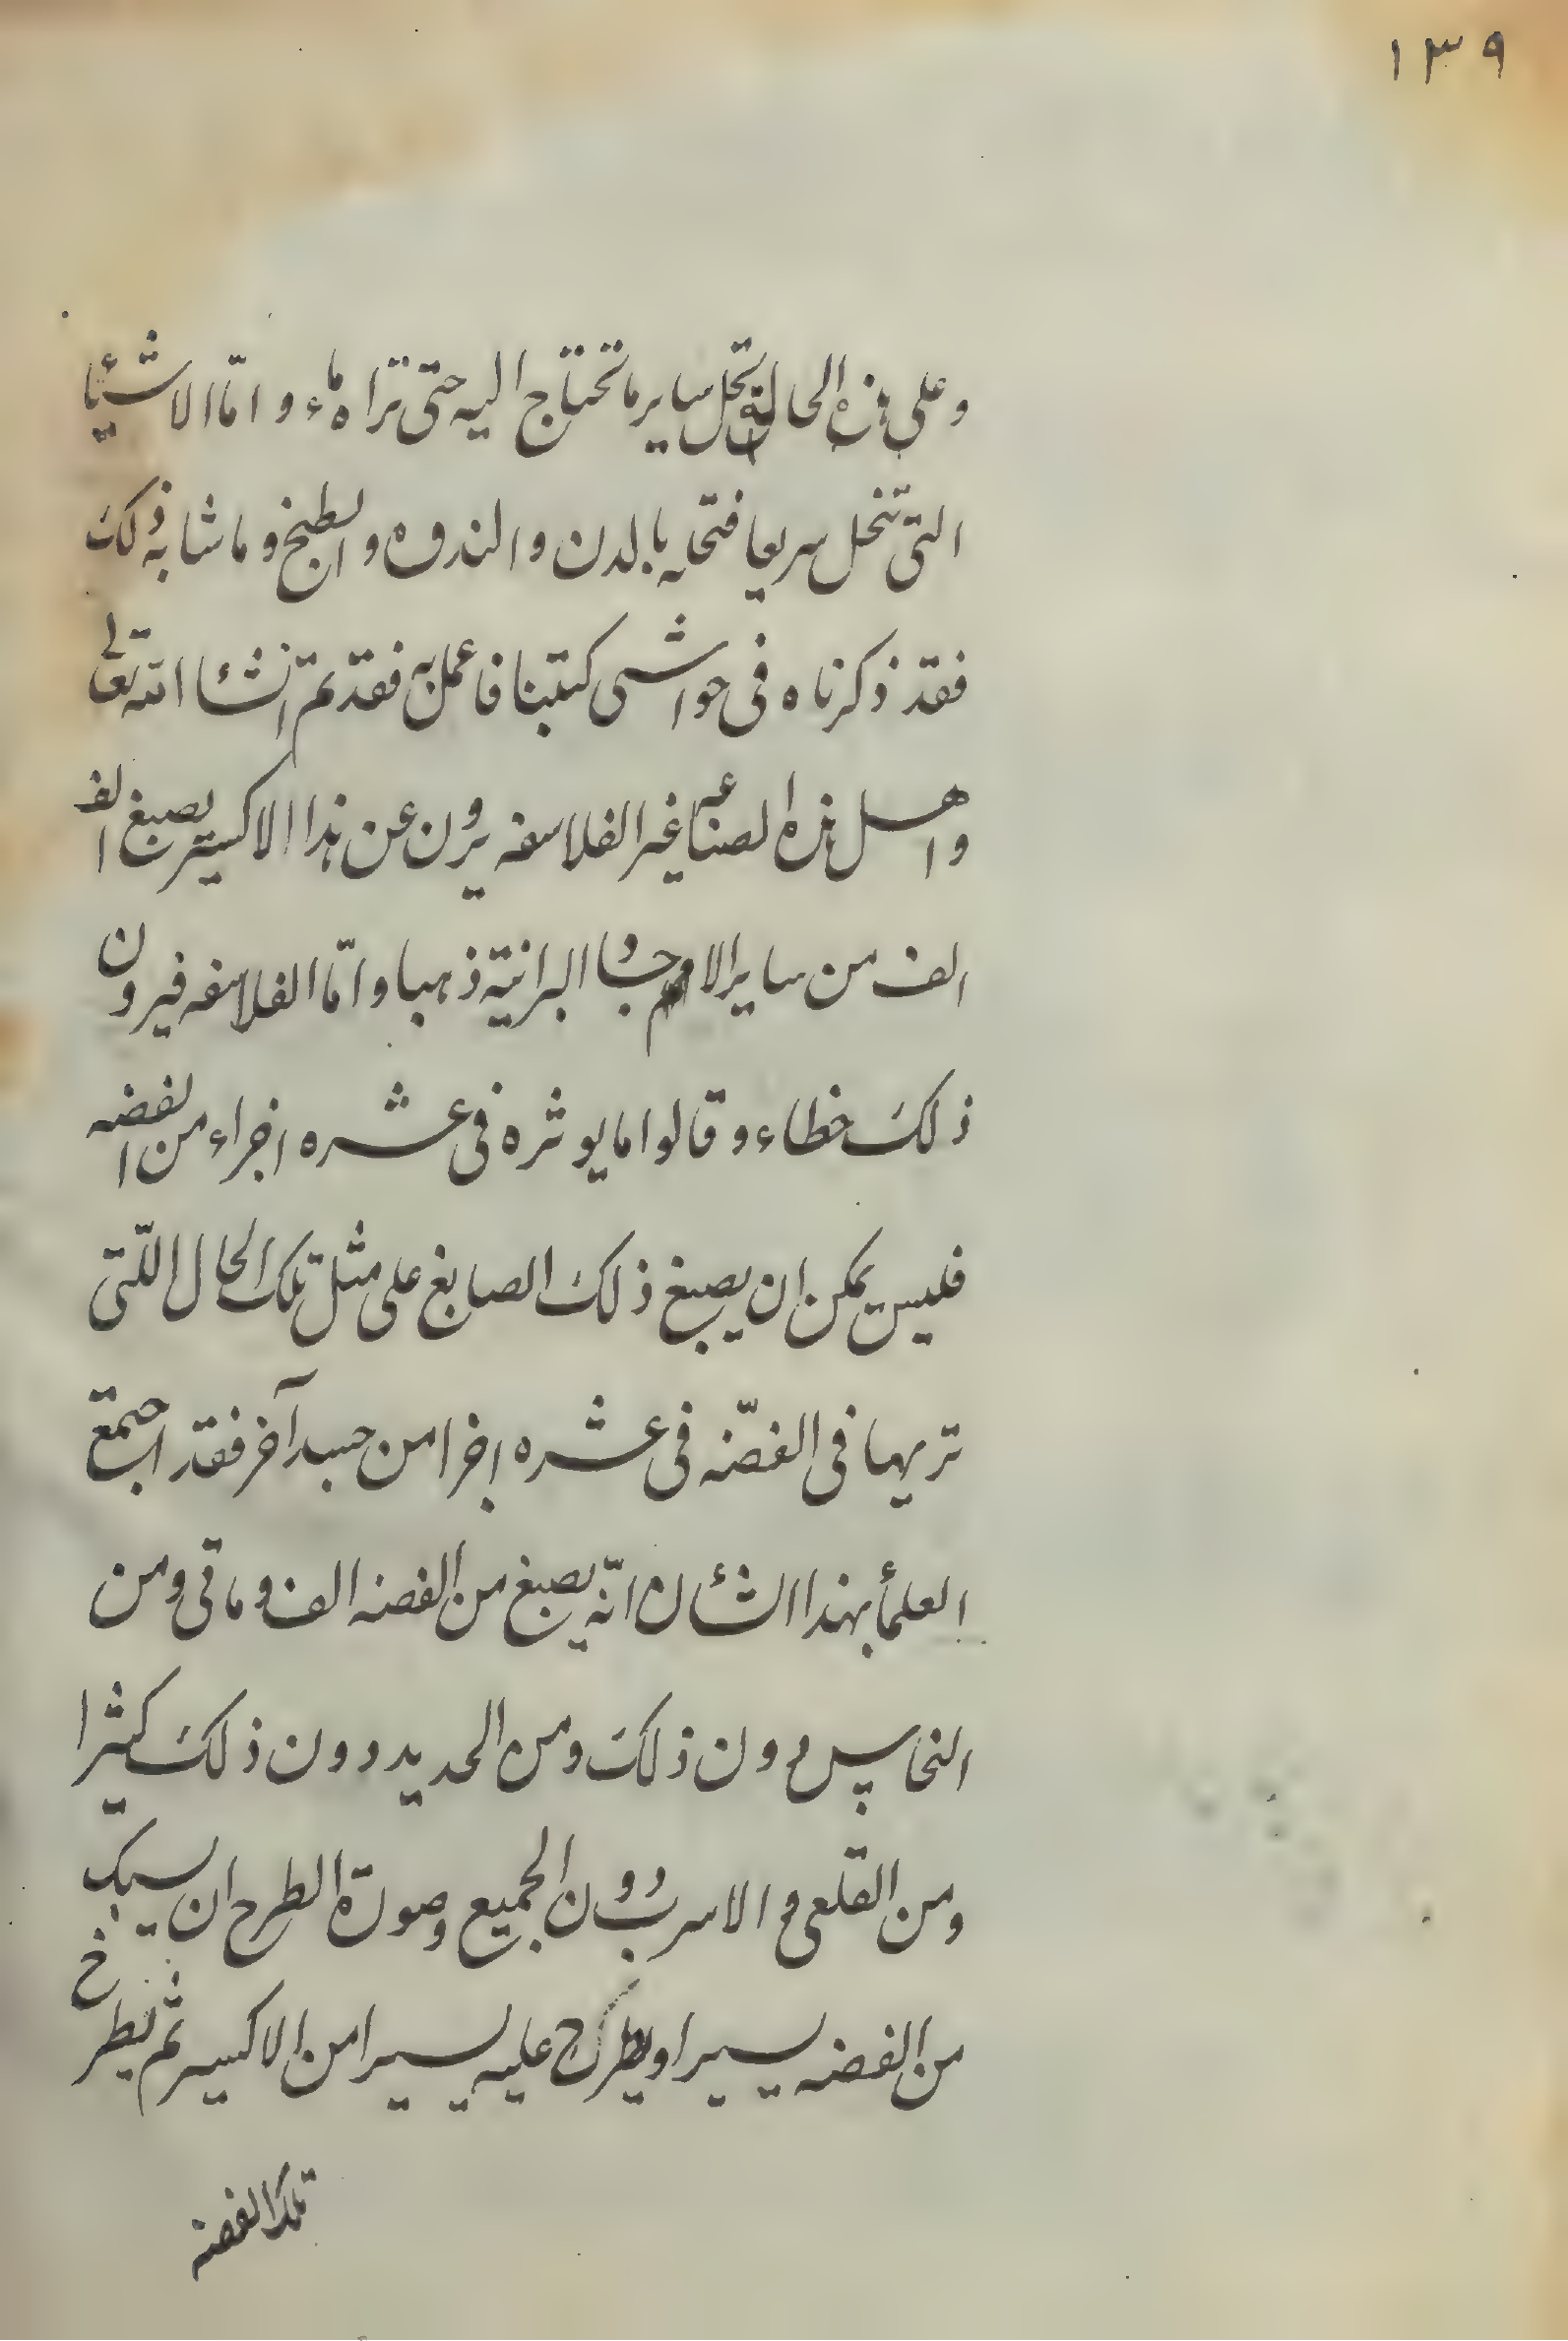 ١٣٩
وعلى هذه الحالة تحل ساير ما تحتاج اليه حتى تراه ماء واما الاشيئا
التى تنحل سريعا فتحله بالدن والندوه والطبخ وما شابه ذلك
فقد ذكرناه فى حواشى كتبنا فاعمل به فقد تم انشئا الله تعالى
واهل هذه الصناعه غير الفلاسفه يرون عن هذا الاكسير يصبغ الف
الف من ساير الاجسا البرانية ذهبا وامّا الفلاسفه فيرون
ذلك خطاء وقالوا ما يوثره فى عشره اجزاء من الفضه
فليس يمكن ان يصبغ ذلك الصابغ على مثل تلك الحال اللّتى
تريها فى الفضّه فى عشره اجزا من جسد آخر فقد اجتمع
العلمأ بهذا الشئان انّه يصبغ من الفضه الف وماتى ومن
النحاس دون ذلك ومن الحديد دون ذلك كثيرا
ومن القلعى والاسرب دون الجميع وصورة الطرح ان يسبك
من الفضه يسيرا ويطرح عليه يسيرا من الاكسير ثم يطرح
تلك الفضه